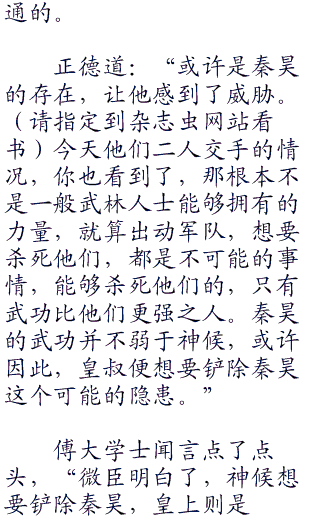 通的。
正德道：“或许是秦昊
的存在，让他感到了威胁。
（请指定到杂志虫网站看
书）今天他们二人交手的情
况，你也看到了，那根本不
是一般武林人士能够拥有的
力量，就算出动军队，想要
杀死他们，都是不可能的事
情，能够杀死他们的，只有
武功比他们更强之人。秦昊
的武功并不弱于神候，或许
因此，皇叔便想要铲除秦昊
这个可能的隐患。”
傅大学士闻言点了点
头，“微臣明白了，神候想
要铲除秦昊，皇上则是